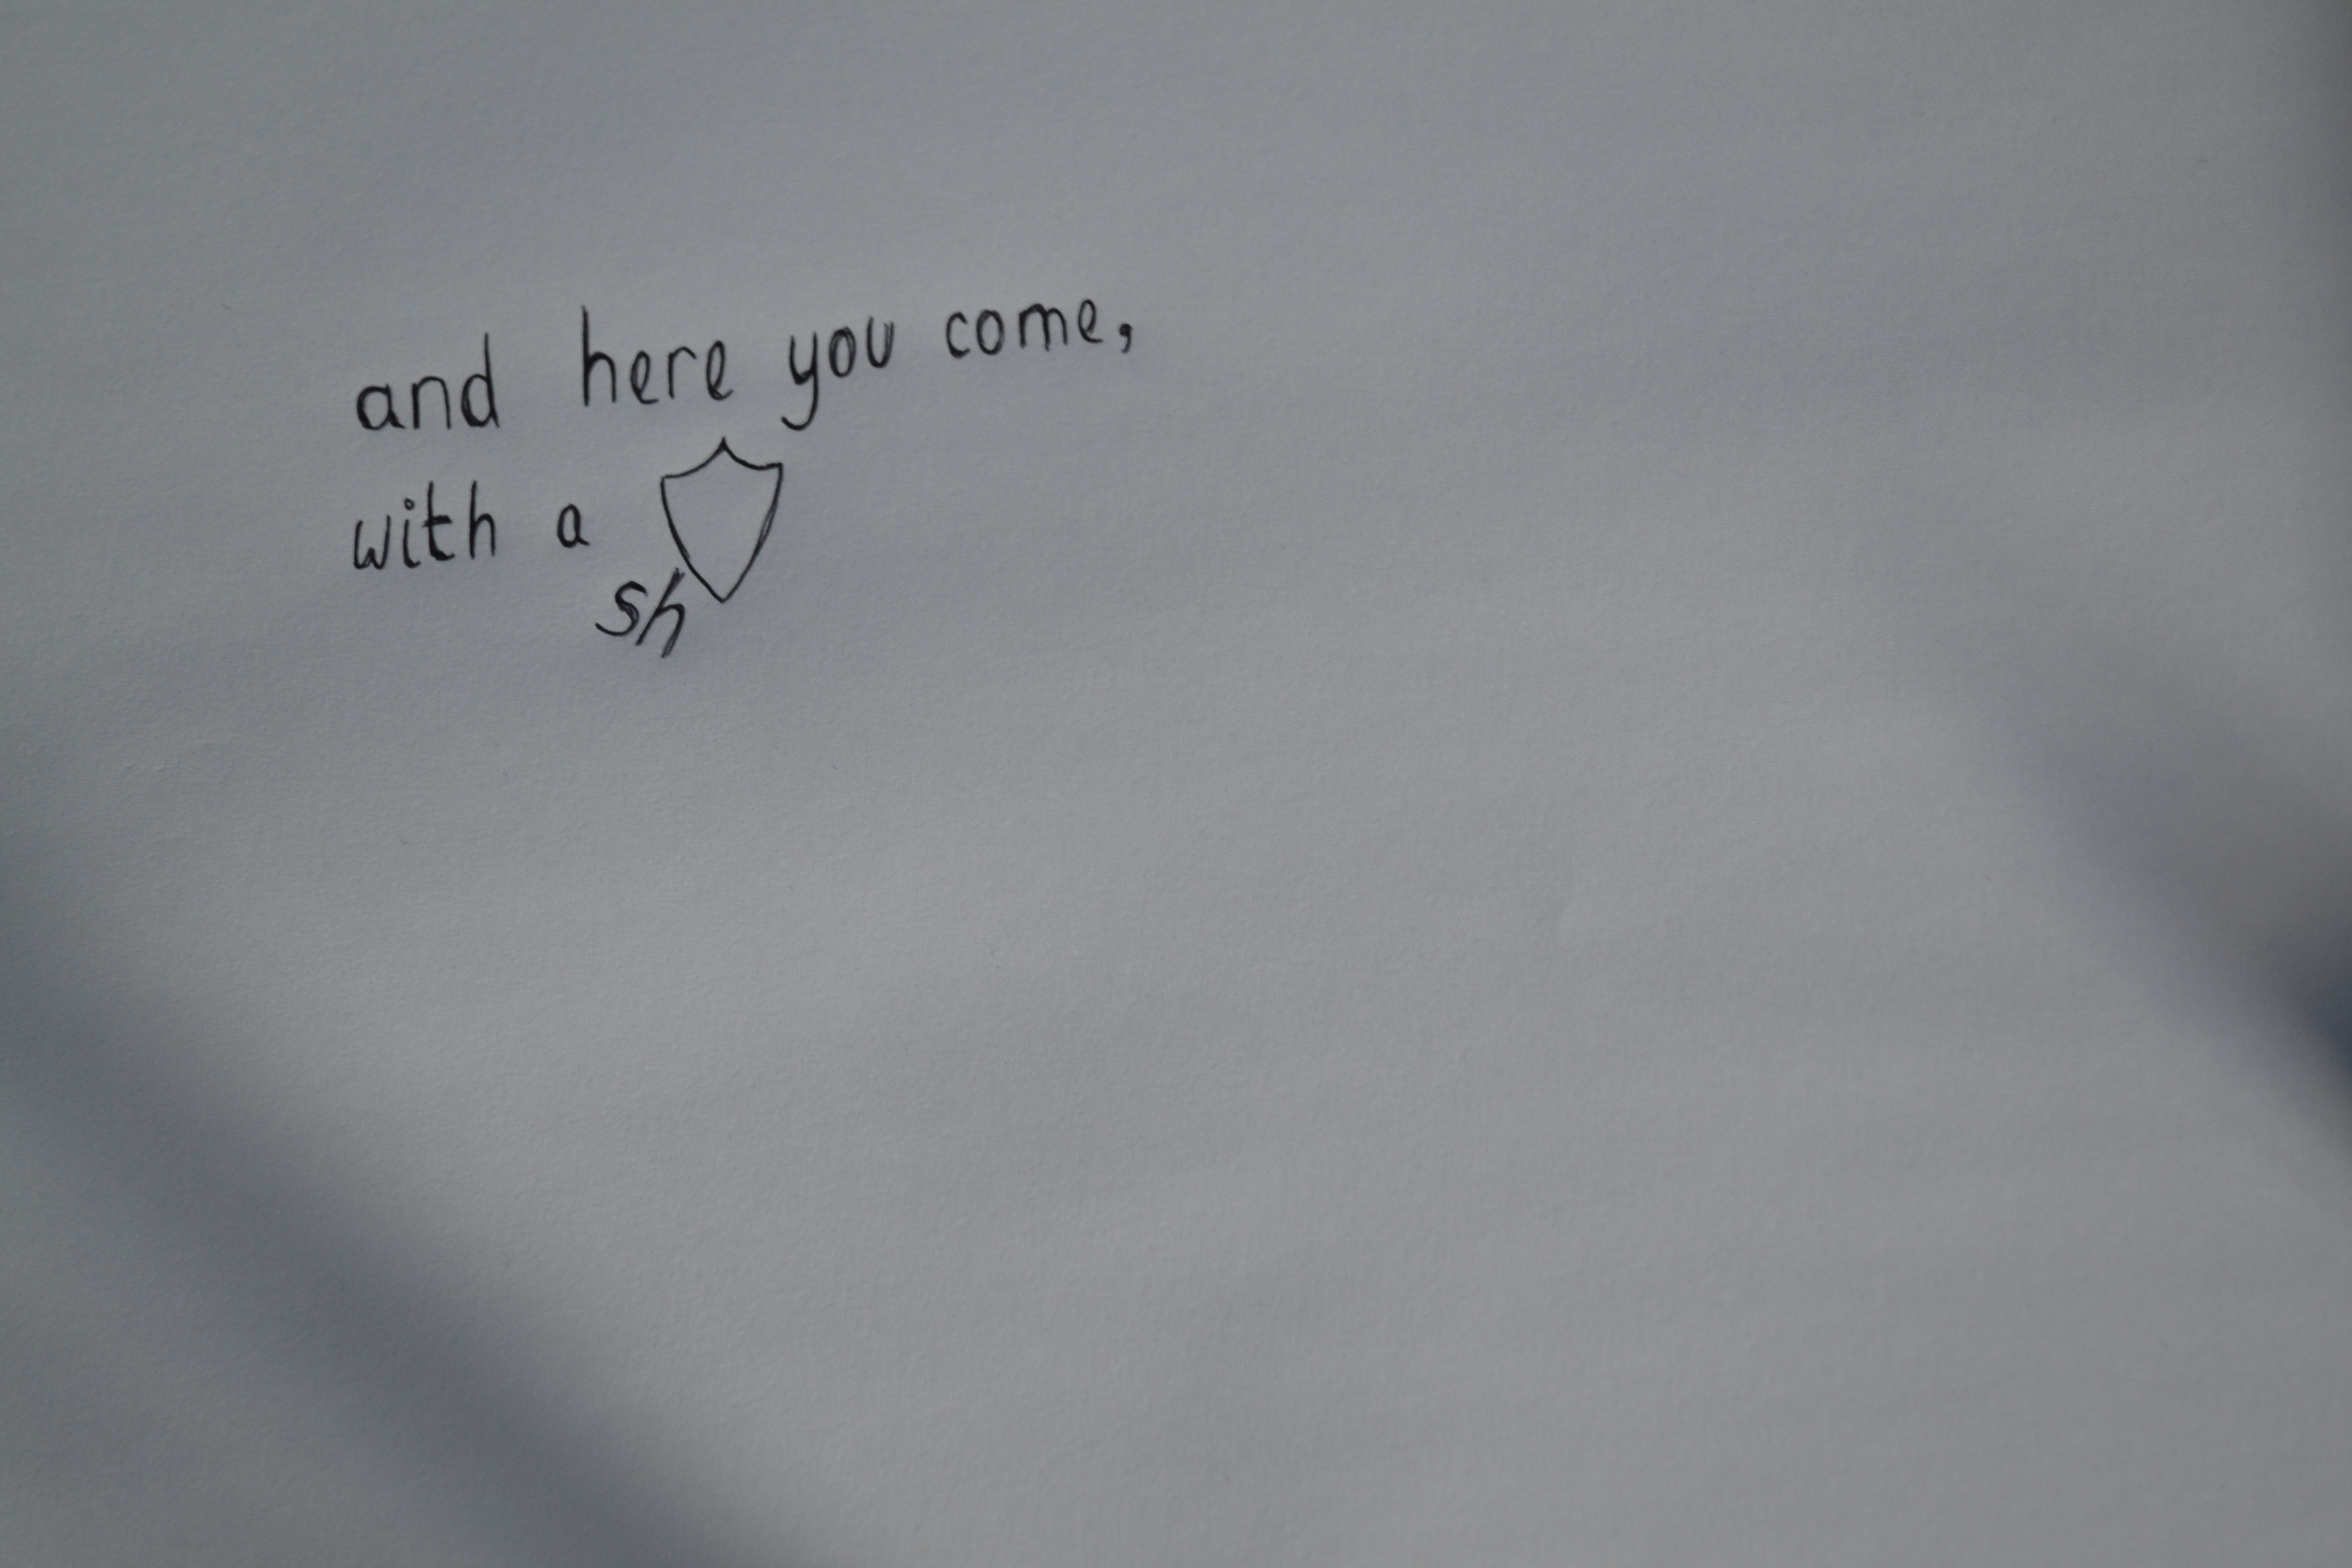 and here you come,
with a
sh